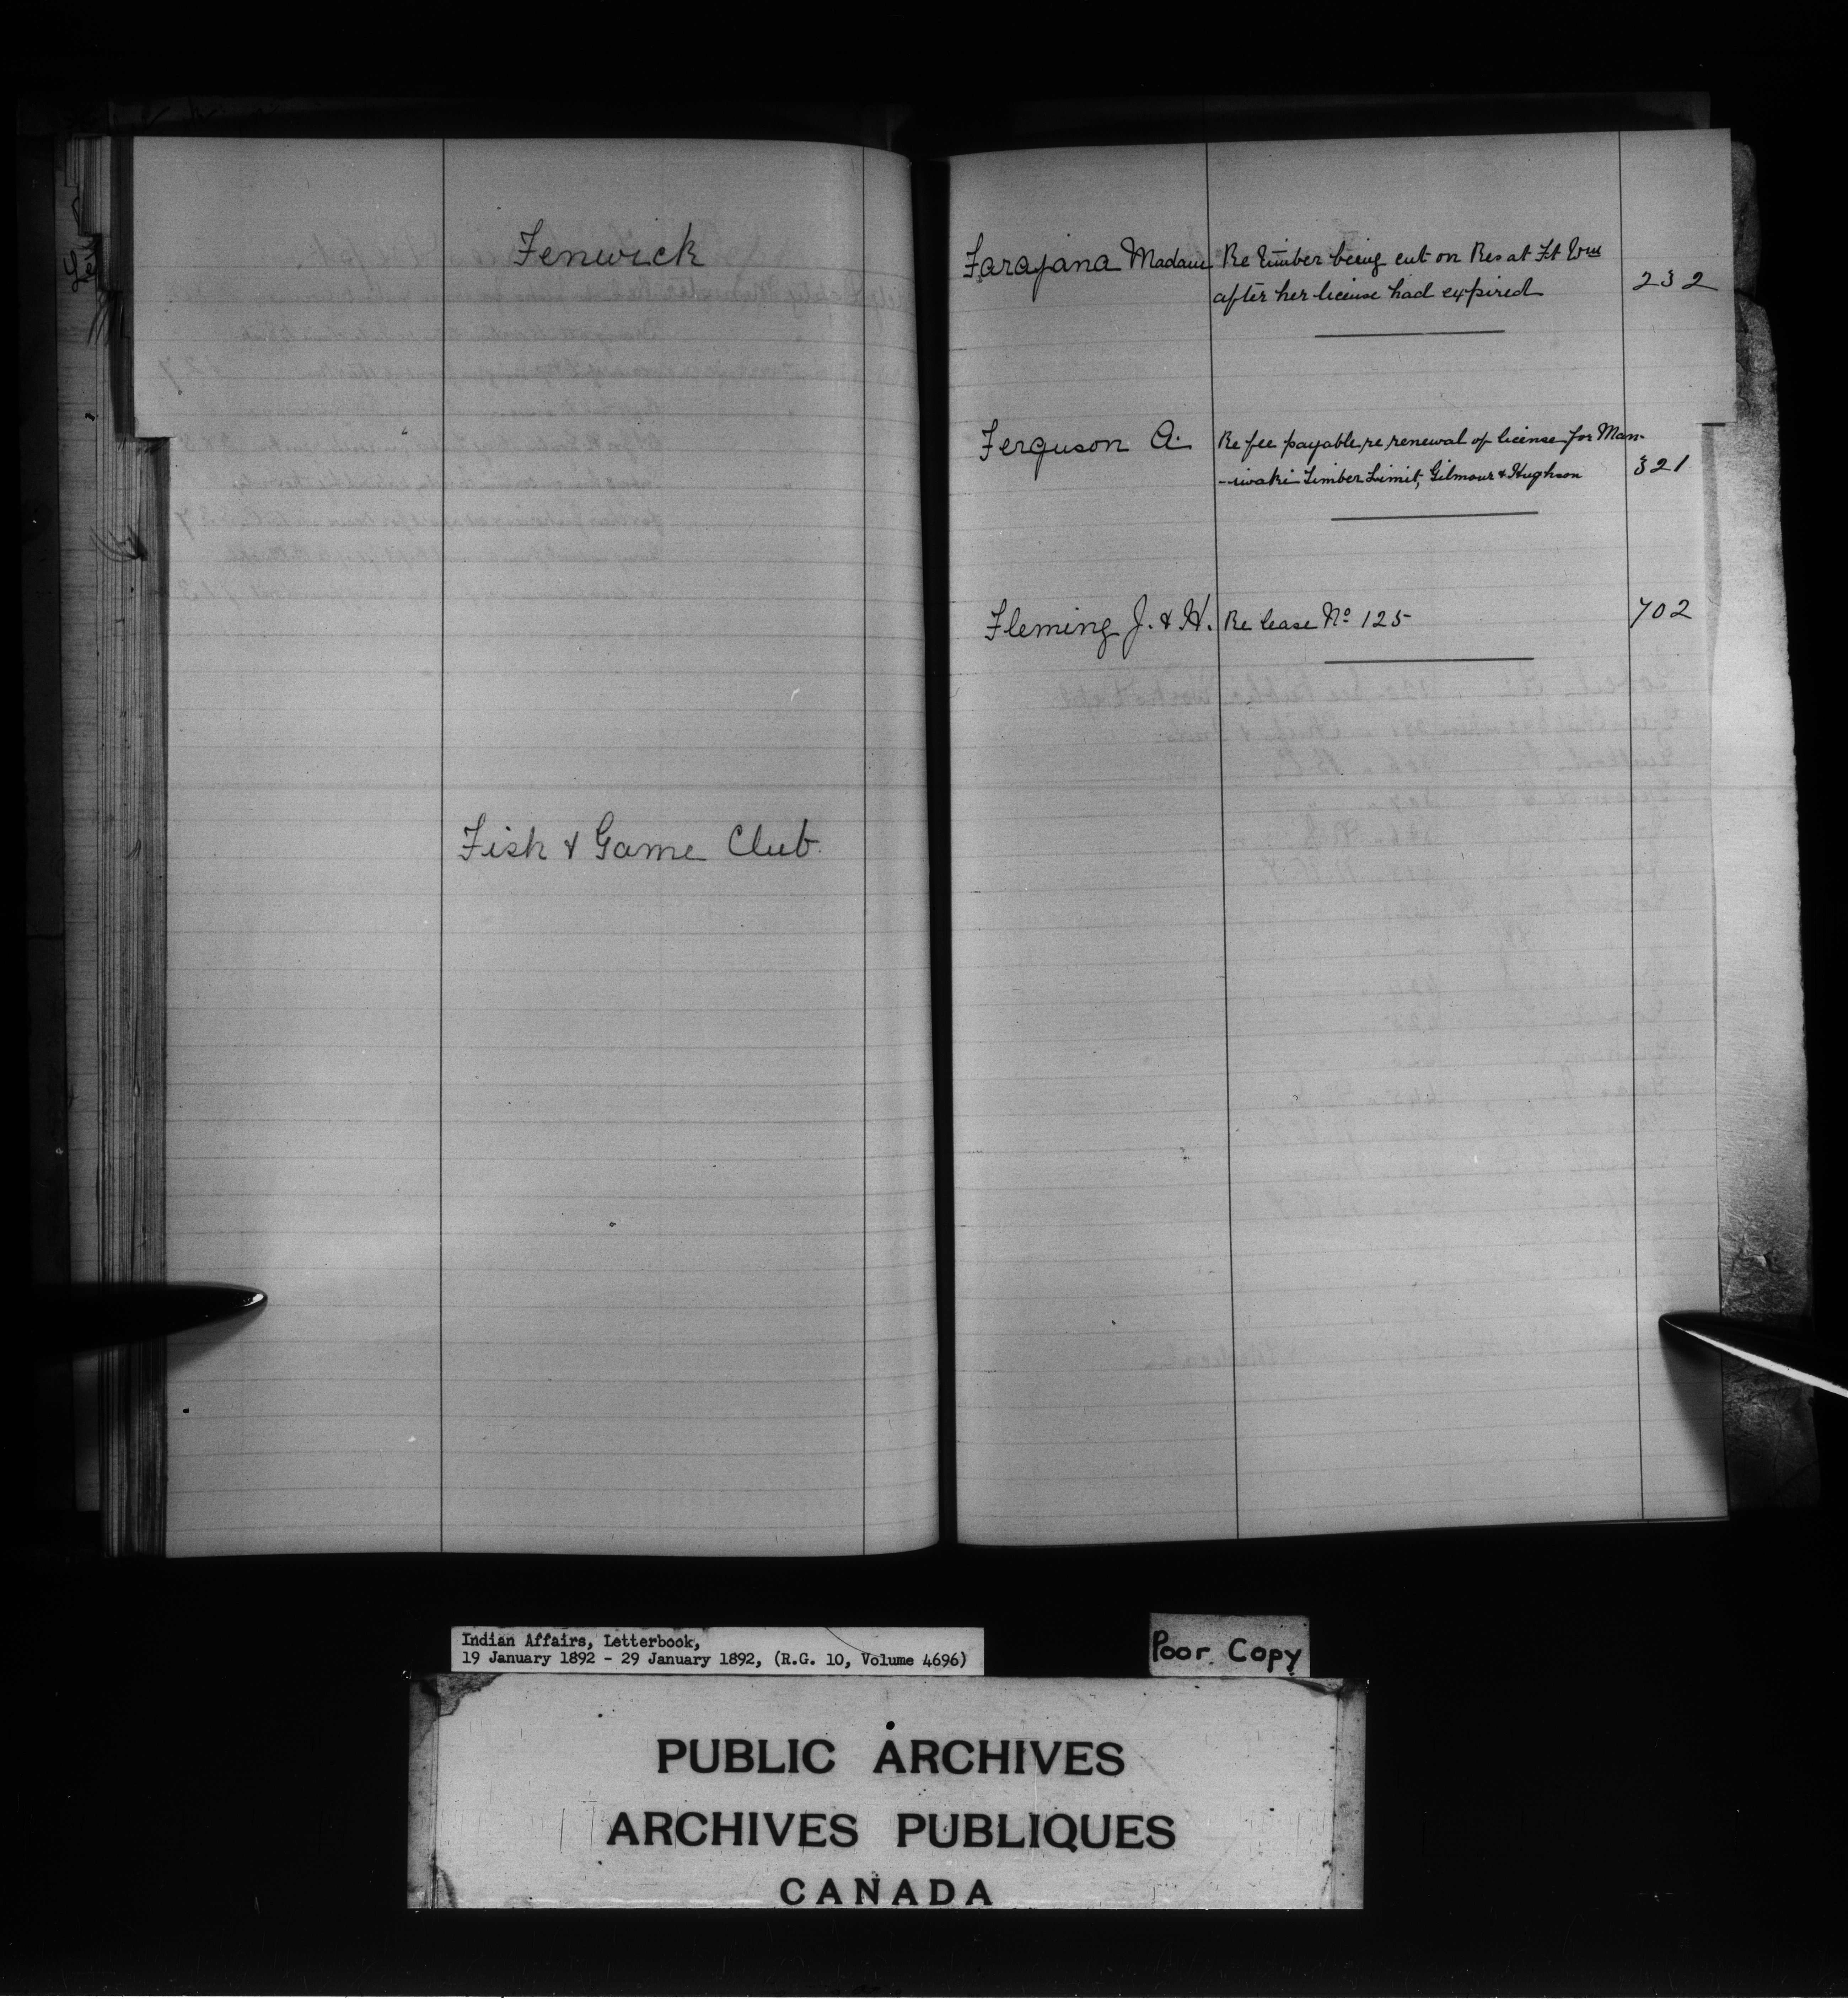 Fenwick
Fish & Game Club.
Farajana Madam Re timber being cut on Res at Ft Wm
after her license had expired 232
Ferguson A. Re fee payable re renewal of license for Man-
-iwaki Timber Limit, Gilmour & Hughson 321
Fleming J. & H. Re lease No 125 702
Indian Affairs, Letterbook,
19 January 1892 - 29 January 1892, (R.G. 10, Volume 4696)
Poor Copy
PUBLIC ARCHIVES
ARCHIVES PUBLIQUES
CANADA